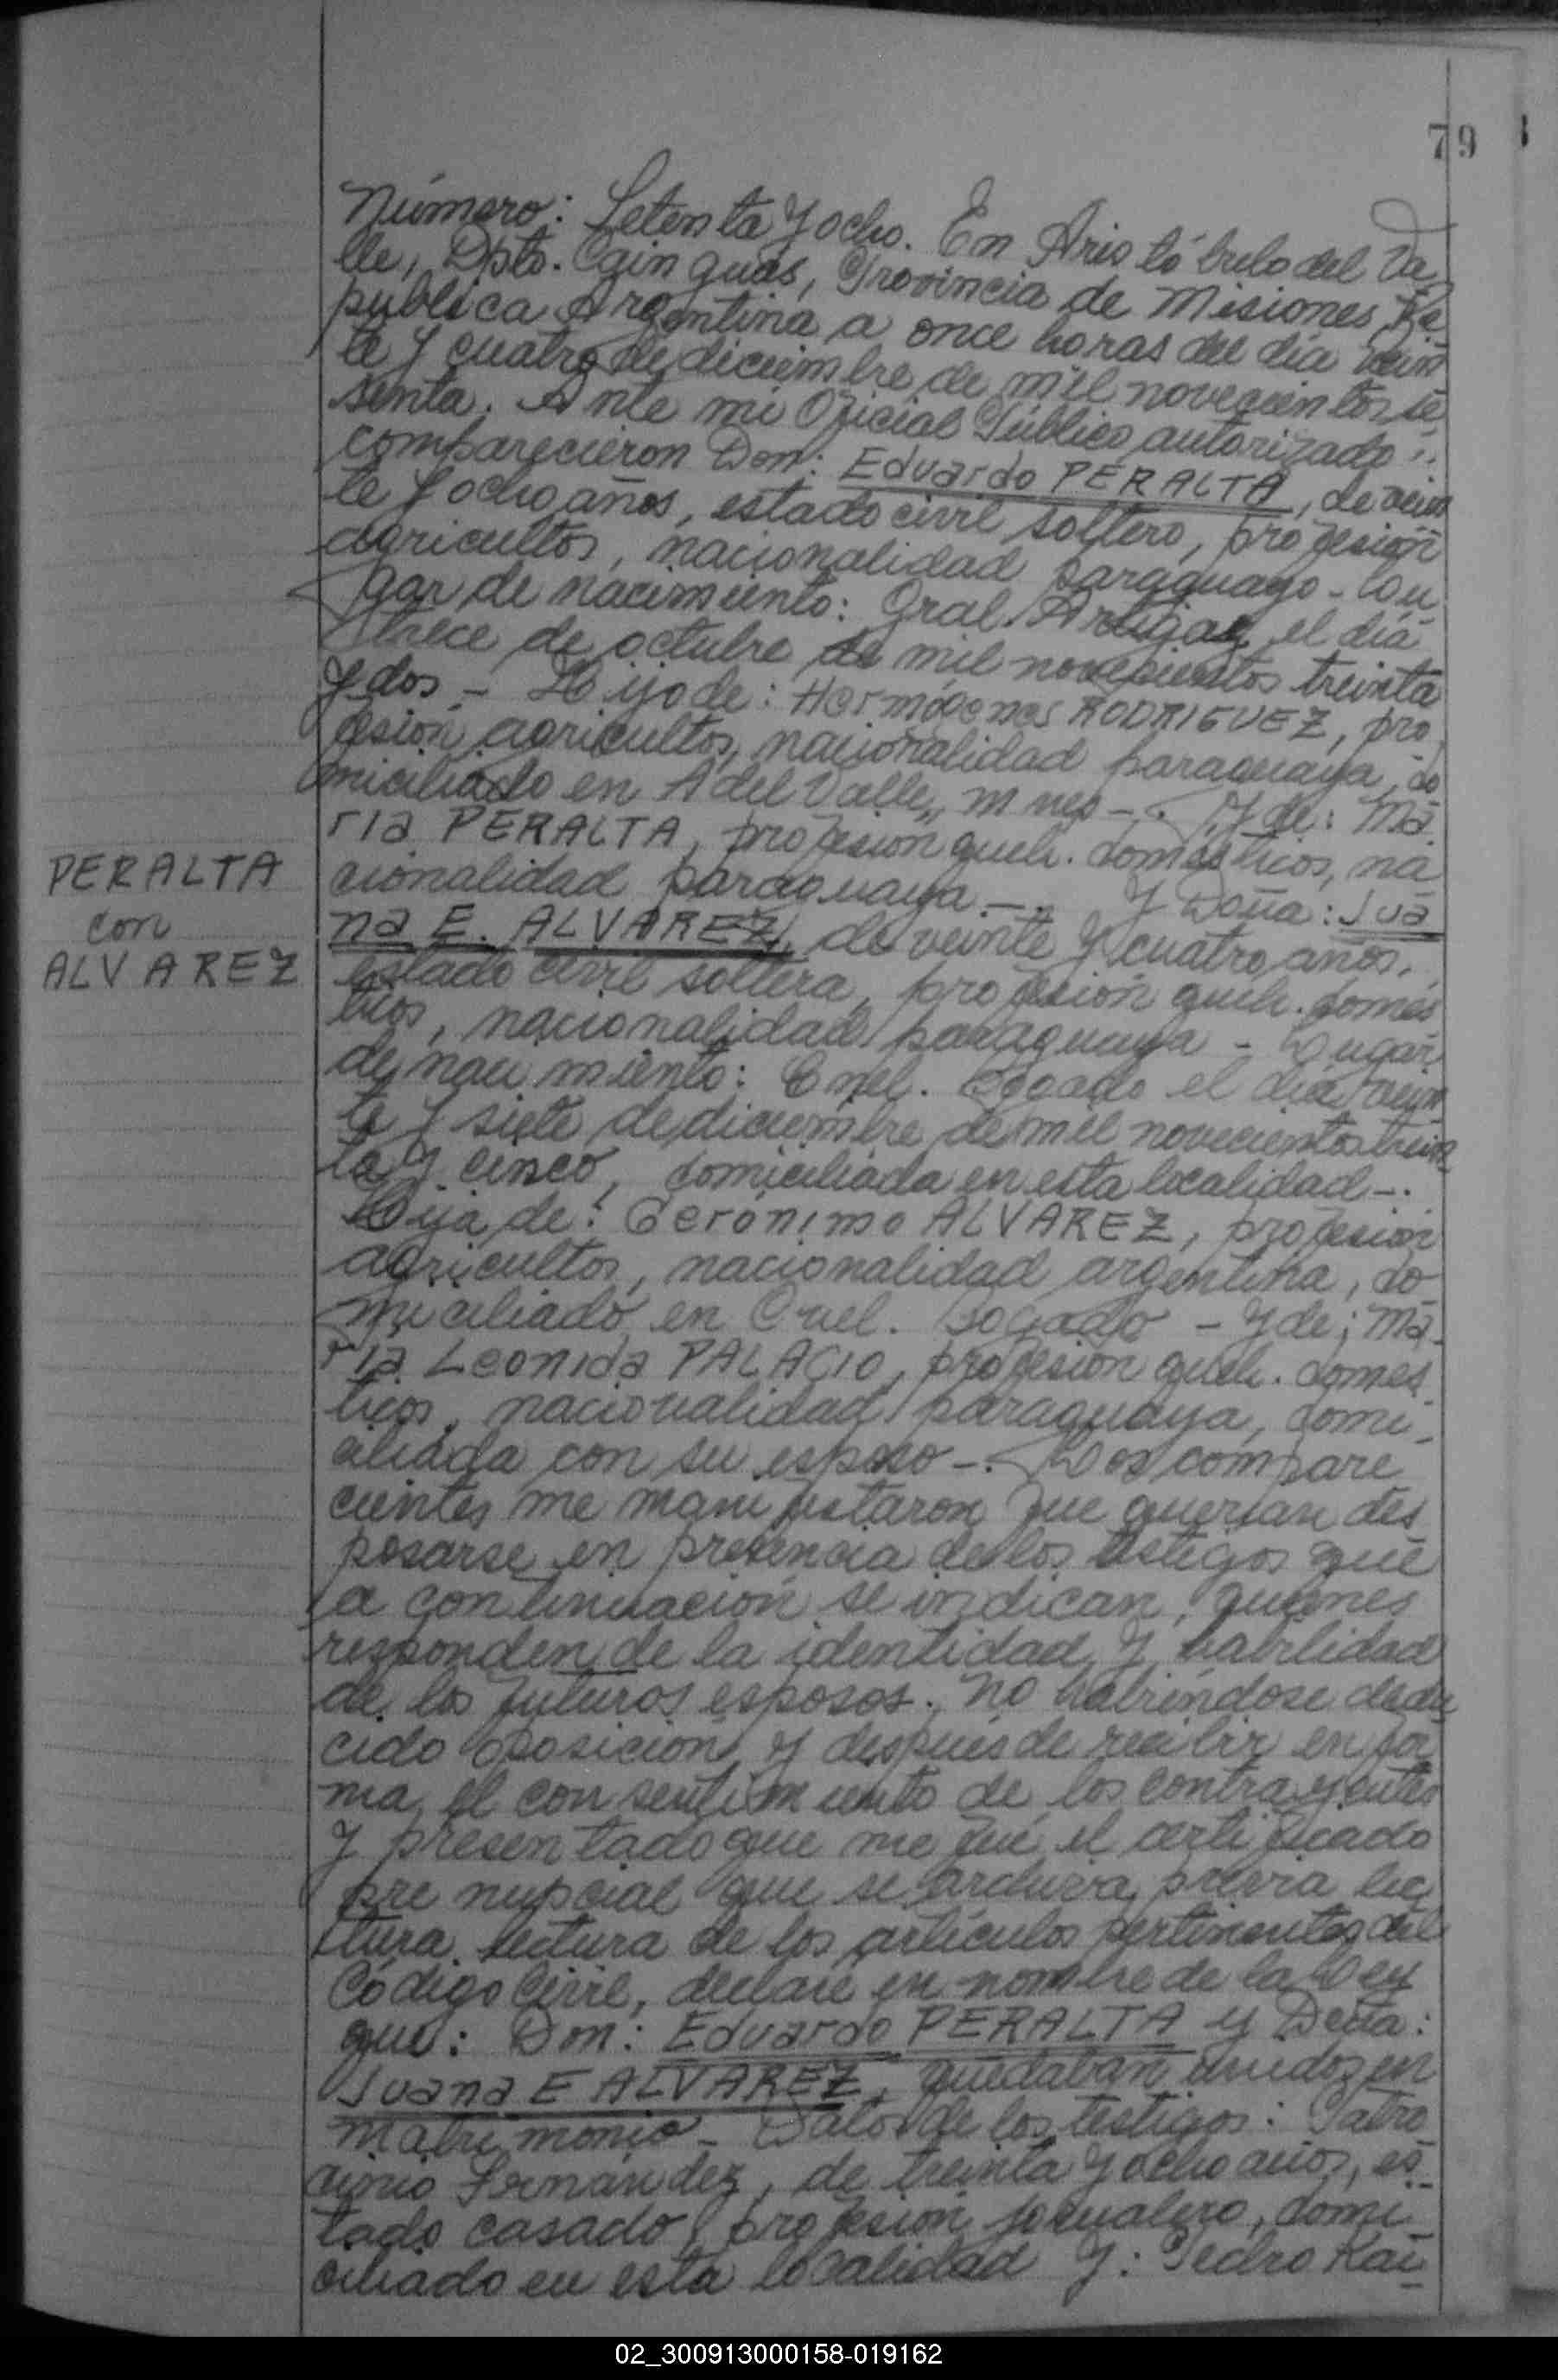 79
Número: Setenta y ocho. En Aristóbulo del Va
lle, Dpto. Cainguás, Provincia de Misiones, Re
pública Argentina a once horas del día vein
te y cuatro de diciembre de mil novecientos se
senta. Ante mi Oficial Público autorizado :.
comparecieron Don: Eduardo PERALTA, de vein
te y ocho años, estado civil soltero, profesión
agricultor, nacionalidad paraguayo - Lu
gar de nacimiento: Gral. Artigas, el día
trece de octubre de mil novecientos treinta
y dos - Hijo de: Hermógenes RODRIGUEZ, pro
fesión agricultor, nacionalidad paraguaya, do
miciliado en A del Valle, Mnes -. Y de: Ma
ría PERALTA, profesión queh. domésticos, na
cionalidad paraguaya -. Y Doña: Jua
PERALTA
con
ALVAREZ
na E. ALVAREZ, de veinte y cuatro años,
estado civil soltera, profesión queh. domés
ticos, nacionalidad paraguaya - Lugar
de nacimiento: Cnel. Bogado el día vein
te y siete de diciembre de mil novecientos trein
ta y cinco, domiciliada en esta localidad -.
Hija de: Gerónimo ALVAREZ, profesión
agricultor, nacionalidad argentina, do
miciliado en Cnel. Bogado - Y de: Ma
ría Leonida PALACIO, profesión queh. domés
ticos, nacionalidad paraguaya, domi
ciliada con su esposo -. Los compare
cientes me manifestaron que querían des
posarse en presencia de los testigos que
a continuación se indican, quienes
responden de la identidad y habilidad
de los futuros esposos. No habiéndose dedu
cido oposición y después de recibir en for
ma el consentimiento de los contrayentes
y presentado que me fué el certificado
pre nupcial que se archiva, previa lec
tura lectura de los artículos pertinentes del
Código Civil, declaré en nombre de la Ley
que: Don: Eduardo PERALTA y Doña:
Juana E ALVAREZ, quedaban unidos en
matrimonio - Datos de los testigos: Patro
cinio Fernández, de treinta y ocho años, es
tado casado, profesión jornalero, domi
ciliado en esta localidad y: Pedro Rai
02_300913000158-019162